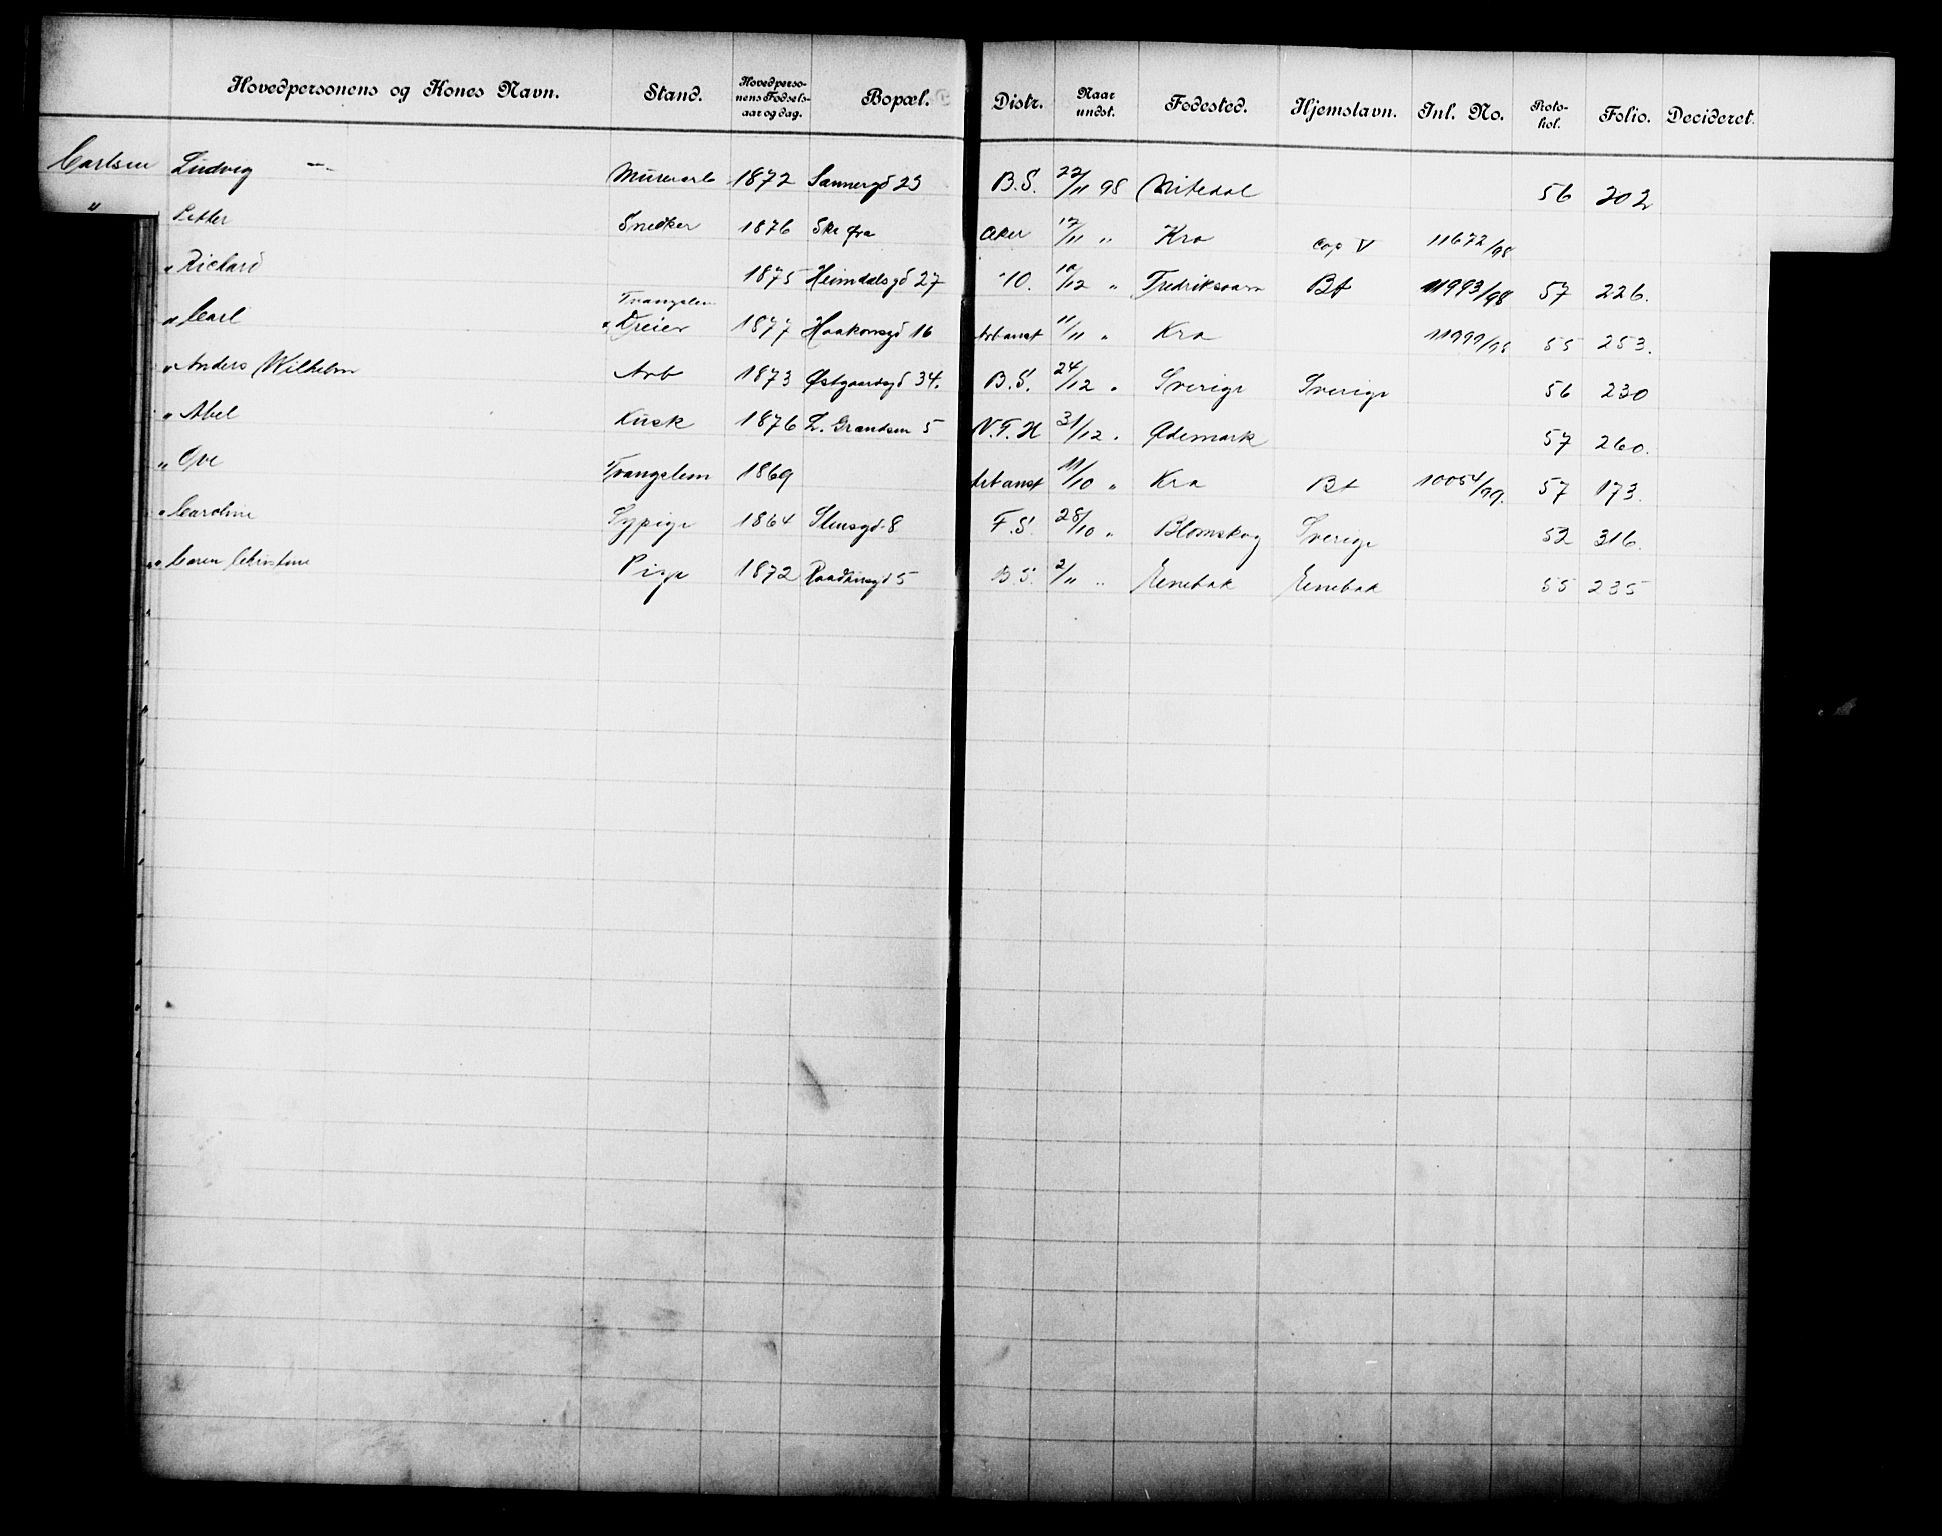 Hovedpersonens og Kones Navn. Stand. Hovedperso-nens Fødsels-aar og dag. Bopæl. Distr. Naar undst. Fødested. Hjemstavn. Inl. No. Proto-kol. Folio. Decideret.
Carlsen Ludvig — Murerarb 1872 Sannergd 23 B.S. 22/11 98 Nitedal 56 202
" Petter Snedker 1876 Ske fra Aker 17/11 " Kra 11672/98
" Richard 1875 Heimdalsgd 27 10. 10/12 " Fredriksværn Bt 11993/98 57 226.
" Carl Tvangslem Dreier 1877 Haakonsgd 16 Arbanst 11/11 " Kra 11999/98 55 253.
" Anders Wilhelm Arb 1873 Østgaardsgd 34. B.S. 24/12 " Sverige Sverige 56 230
" Abel Kusk 1876 L. Grændsen 5 V.F.H 31/12 " Ødemark 57 260.
" Ove Tvangslem 1869 Arbanst 11/10 " Kra Bt 10054/99. 57 173.
" Caroline Sypige 1864 Stensgd 8 F.S. 28/10 " Blomskog Sverige 52 316.
" Caren Christine Pige 1872 Raadhusgd 5 B.S. 2/11 " Enebak Enebak 55 235